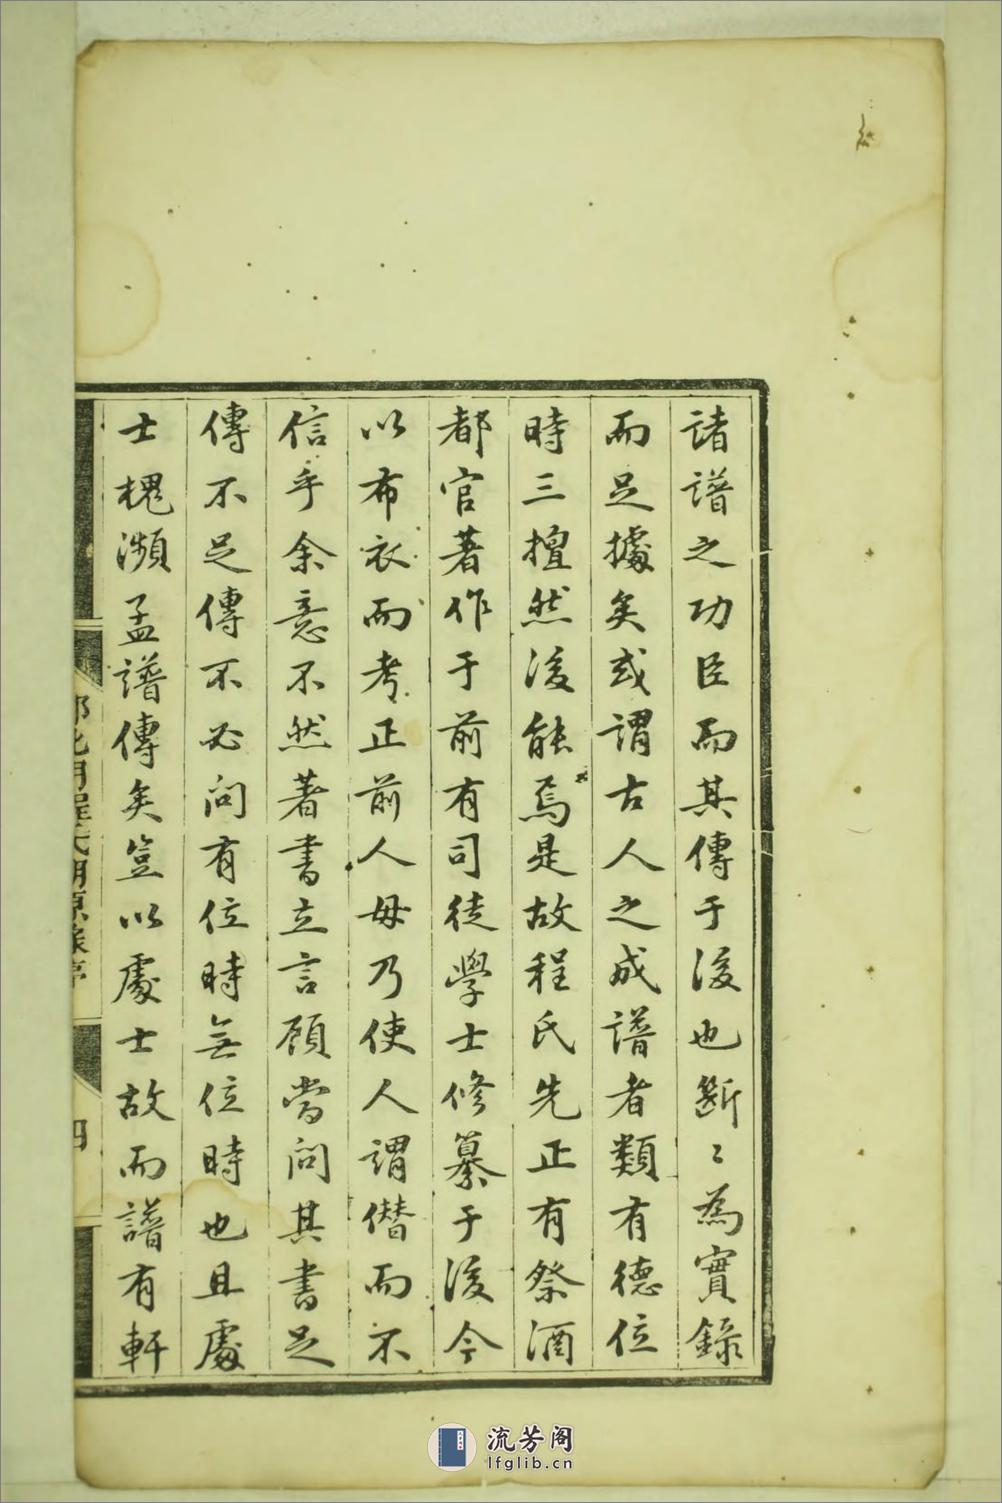 諸譜之功臣而其傳于後也斷〻為實錄
而足據矣或謂古人之成譜者類有德位
時三擅然後能焉是故程氏先正有祭酒
都官著作于前有司徒學士修纂于後今
以布衣而考正前人毋乃使人謂僭而不
信乎余意不然著書立言顧當問其書足
傳不足傳不必問有位時無位時也且處
士槐瀕孟譜傳矣豈以處士故而譜有軒
四
流芳阁
lfglib.cn